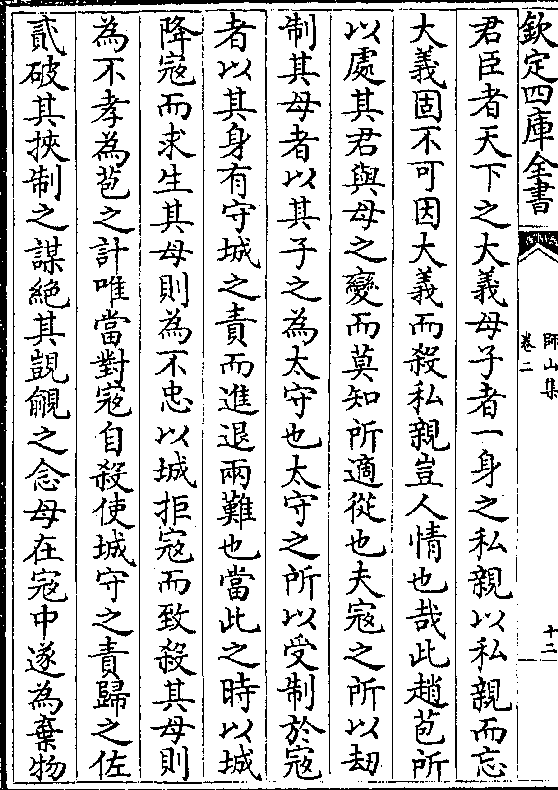 欽定四庫全書
師山集
卷二
十二
君臣者天下之大義母子者一身之私親以私親而忘
大義固不可因大義而殺私親豈人情也哉此趙苞所
以處其君與母之變而莫知所適從也夫寇之所以刧
制其母者以其子之為太守也太守之所以受制於寇
者以其身有守城之責而進退兩難也當此之時以城
降寇而求生其母則為不忠以城拒寇而致殺其母則
為不孝為苞之計唯當對寇自殺使城守之責歸之佐
貳破其挾制之謀絶其覬覦之念母在寇中遂為棄物